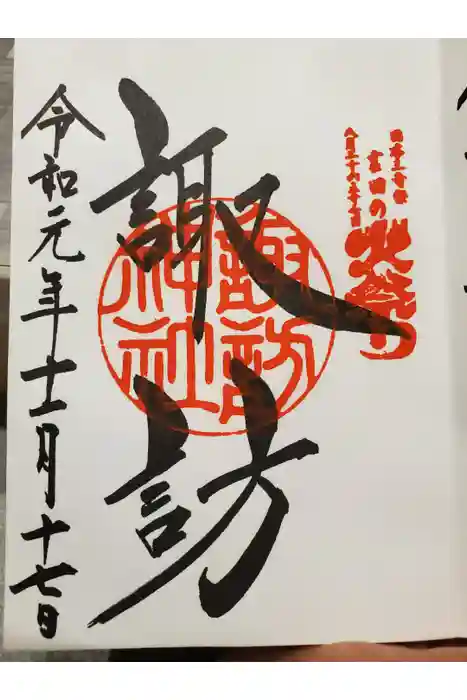 日本三奇祭
吉田の火祭り
八月二十六・二十七日
諏訪
諏訪
神社
令和元年十二月十七日